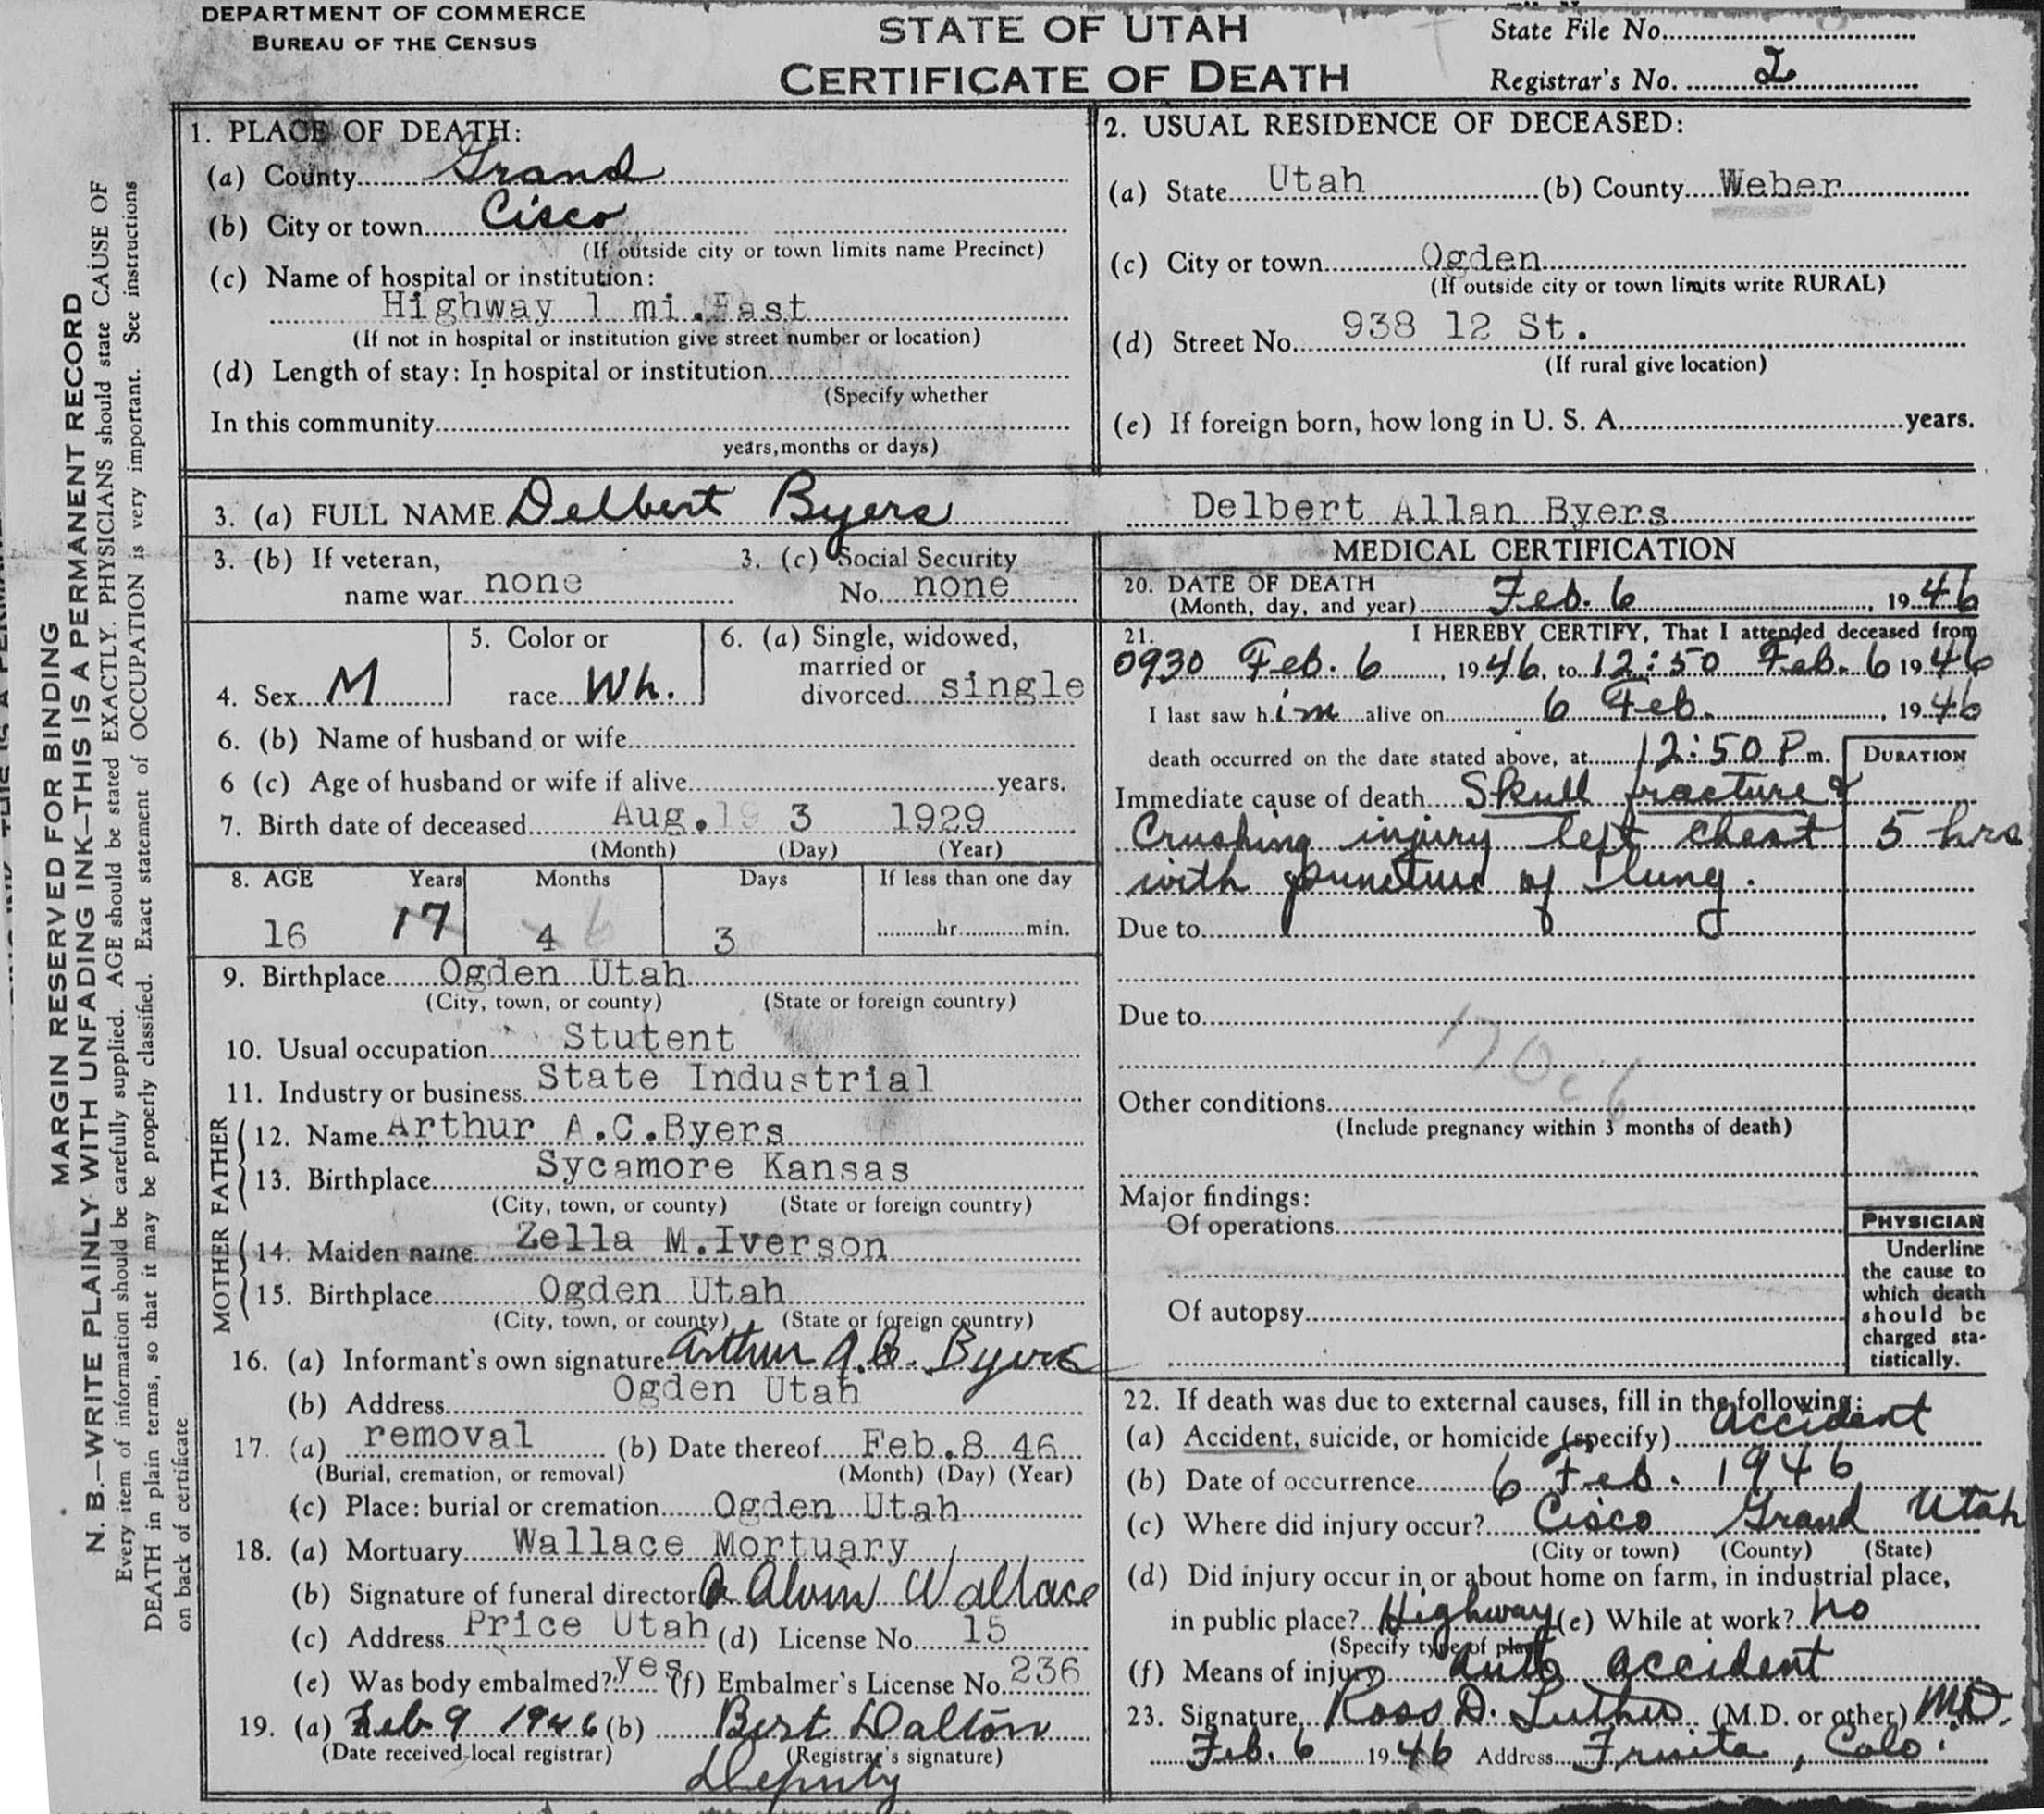 DEPARTMENT OF COMMERCE
BUREAU OF THE CENSUS
STATE OF UTAH
CERTIFICATE OF DEATH
State File No.
Registrar's No. 2
MARGIN RESERVED FOR BINDING
N. B.—WRITE PLAINLY WITH UNFADING INK—THIS IS A PERMANENT RECORD
Every item of information should be carefully supplied. AGE should be stated EXACTLY. PHYSICIANS should state CAUSE OF
DEATH in plain terms, so that it may be properly classified. Exact statement of OCCUPATION is very important. See instructions
on back of certificate
1. PLACE OF DEATH:
(a) County Grand
(b) City or town Cisco
(If outside city or town limits name Precinct)
(c) Name of hospital or institution:
Highway 1 mi. East
(If not in hospital or institution give street number or location)
(d) Length of stay: In hospital or institution
(Specify whether
In this community
years, months or days)
2. USUAL RESIDENCE OF DECEASED:
(a) State Utah (b) County Weber
(c) City or town Ogden
(If outside city or town limits write RURAL)
(d) Street No. 938 12 St.
(If rural give location)
(e) If foreign born, how long in U. S. A. years.
3. (a) FULL NAME Delbert Byers Delbert Allan Byers
3. (b) If veteran,
name war none
3. (c) Social Security
No. none
4. Sex M
5. Color or
race Wh.
6. (a) Single, widowed,
married or
divorced single
6. (b) Name of husband or wife
6 (c) Age of husband or wife if alive years.
7. Birth date of deceased Aug. 19 3 1929
(Month) (Day) (Year)
8. AGE Years Months Days If less than one day
16 17 4 6 3 hr. min.
9. Birthplace Ogden Utah
(City, town, or county) (State or foreign country)
10. Usual occupation Stutent
11. Industry or business State Industrial
FATHER
12. Name Arthur A.C.Byers
13. Birthplace Sycamore Kansas
(City, town, or county) (State or foreign country)
MOTHER
14. Maiden name Zella M.Iverson
15. Birthplace Ogden Utah
(City, town, or county) (State or foreign country)
16. (a) Informant's own signature Arthur A.C. Byers
(b) Address Ogden Utah
17. (a) removal (b) Date thereof Feb.8 46
(Burial, cremation, or removal) (Month) (Day) (Year)
(c) Place: burial or cremation Ogden Utah
18. (a) Mortuary Wallace Mortuary
(b) Signature of funeral director Alvin Wallace
(c) Address Price Utah (d) License No. 15
(e) Was body embalmed? yes (f) Embalmer's License No. 236
19. (a) Feb 9 1946 (b) Bert Dalton
(Date received local registrar) (Registrar's signature)
Deputy
MEDICAL CERTIFICATION
20. DATE OF DEATH
(Month, day, and year) Feb. 6, 1946
21. I HEREBY CERTIFY, That I attended deceased from
0930 Feb. 6, 1946, to 12:50 Feb. 6 1946
I last saw him alive on 6 Feb., 1946
death occurred on the date stated above, at 12:50 P m.
DURATION
Immediate cause of death Skull fracture &
Crushing injury left chest 5 hrs
with puncture of lung.
Due to
Due to
170c6
Other conditions
(Include pregnancy within 3 months of death)
Major findings:
Of operations
Of autopsy
PHYSICIAN
Underline
the cause to
which death
should be
charged sta-
tistically.
22. If death was due to external causes, fill in the following:
(a) Accident, suicide, or homicide (specify) accident
(b) Date of occurrence 6 Feb. 1946
(c) Where did injury occur? Cisco Grand Utah
(City or town) (County) (State)
(d) Did injury occur in or about home on farm, in industrial place,
in public place? Highway (e) While at work? no
(Specify type of place)
(f) Means of injury auto accident
23. Signature Ross D. (M.D. or other) M.D.
Feb. 6 1946 Address Fruita, Colo.